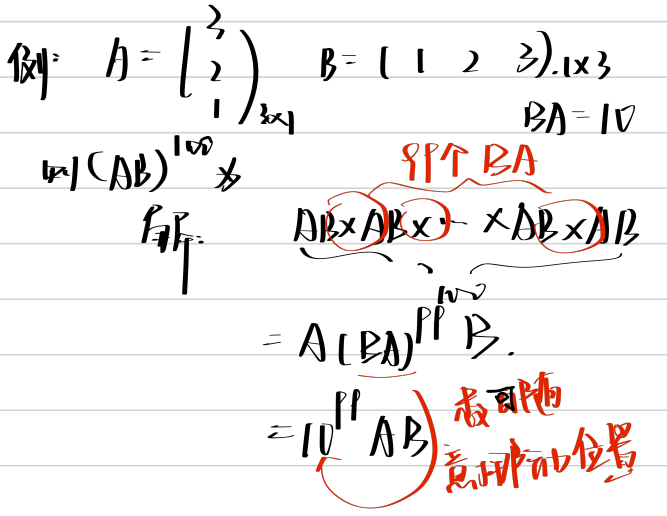 例: A = (3 2 1)3×1 B = (1 2 3).1×3
BA = 10
则(AB)^100 为
99个 BA
解: AB×AB×…×AB×AB
100
= A(BA)^99 B.
= 10^99 AB
数可随
意 位置